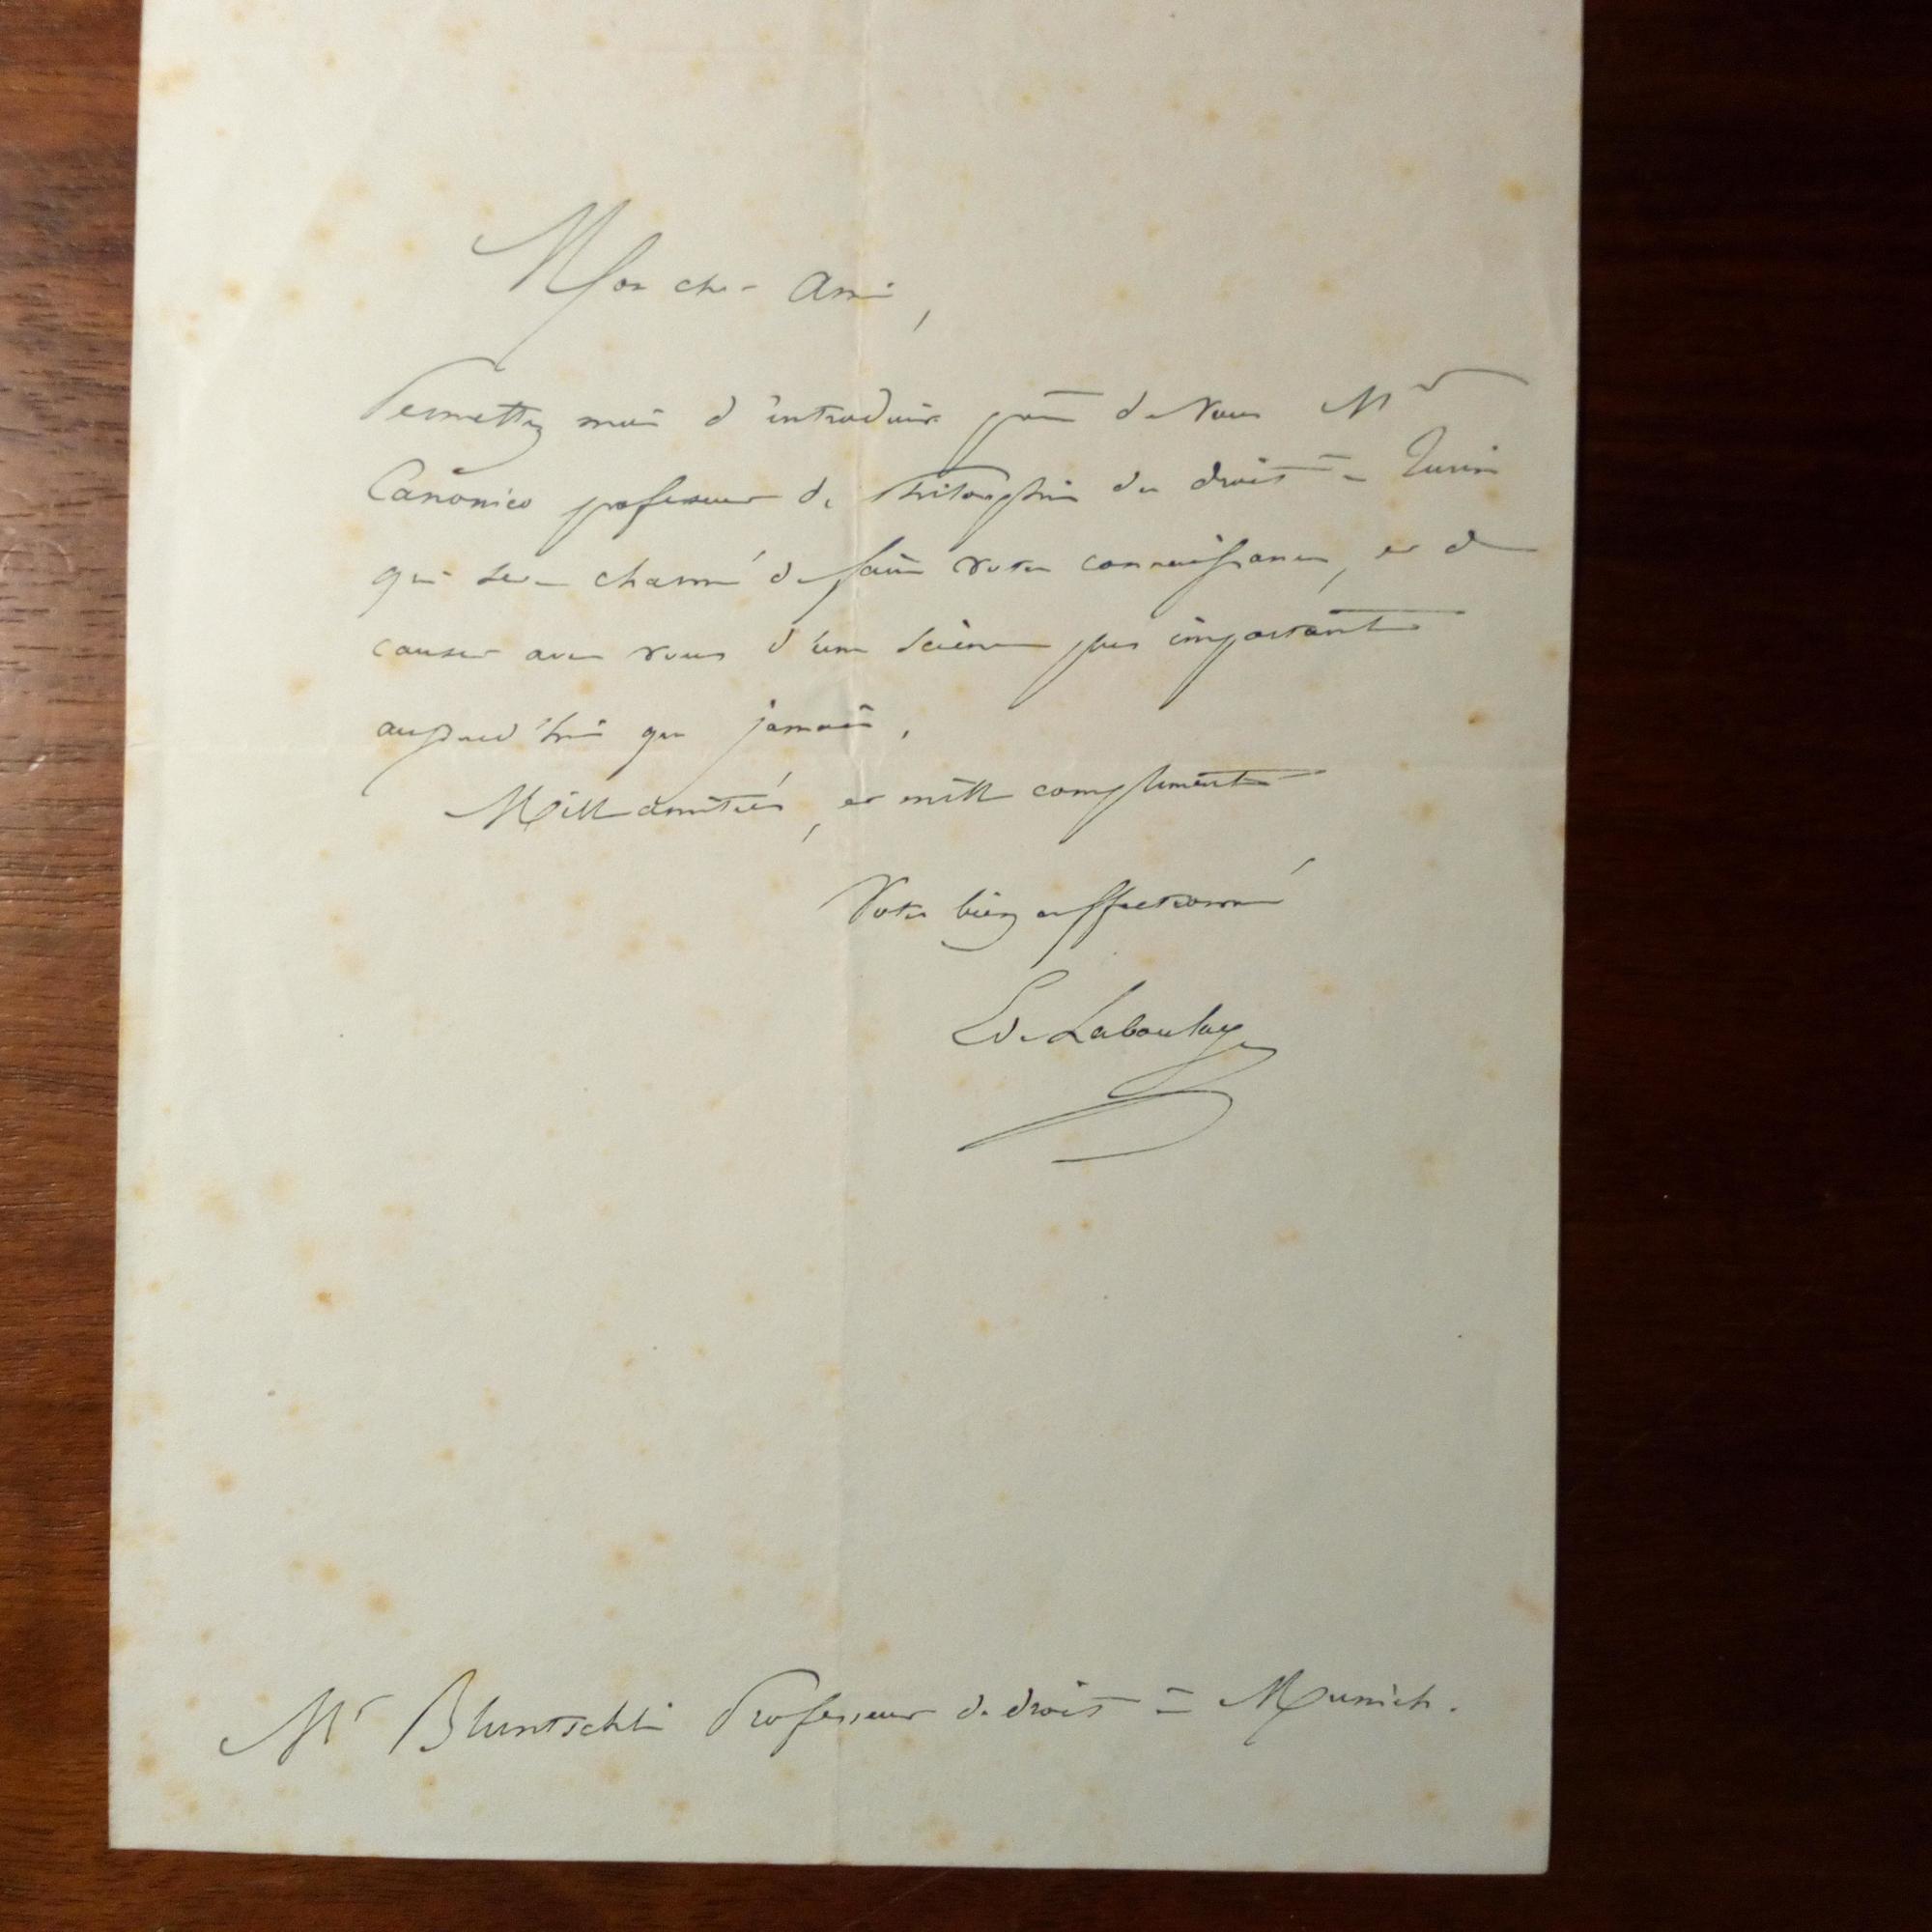 Mon cher Ami,
Permettez moi d'introduire près de Vous Mr
Canonico professeur de Philosophie du droit à Turin
qui sera charmé de faire votre connaissance, et de
causer avec vous d'une science plus importante
aujourd'hui que jamais.
Mille amitiés, et mille compliments
Votre bien affectionné
Ed. Laboulaye
Mr Bluntschli Professeur de droit à Munich.